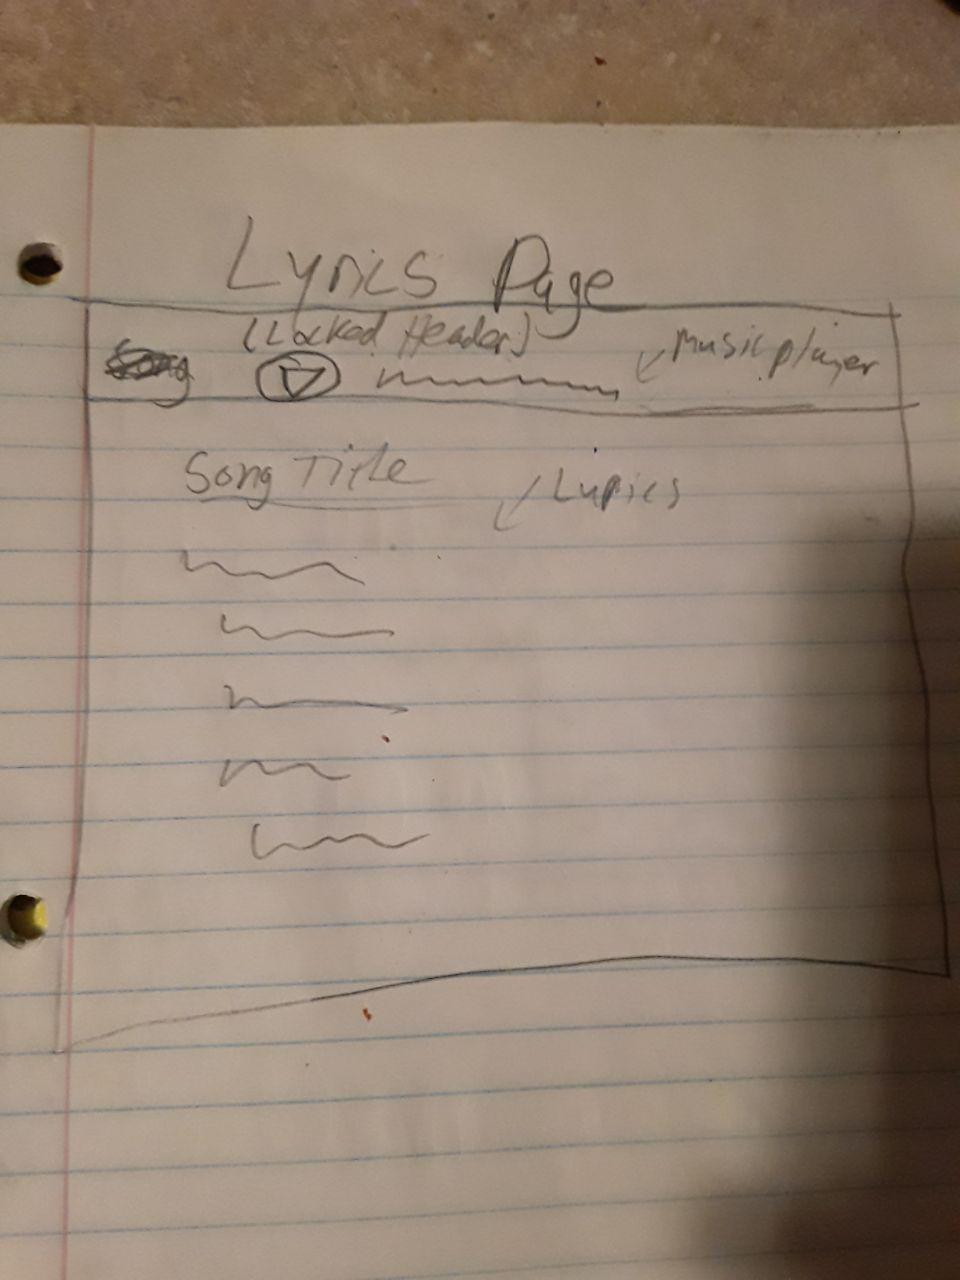 Lyrics Page
(Locked Header)
Song
Music player
Song Title
Lyrics